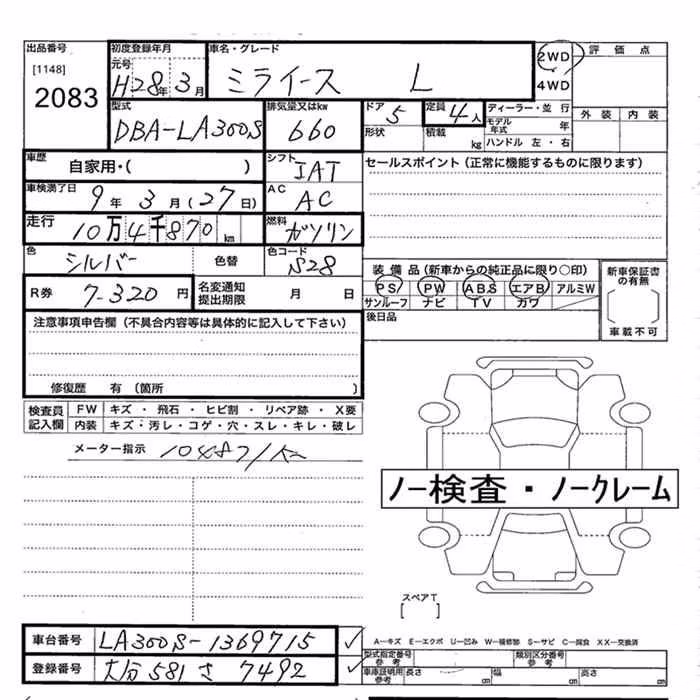 出品番号 初度登録年月 車名・グレード 2WD 評価点
[1148] 元号 4WD
2083 H28年3月 ミライース L
型式 排気量又はkw ドア 5 定員 4人 ディーラー・並行 外装 内装
DBA-LA300S 660 形状 積載 kg モデル年式 年
ハンドル 左・右
車歴 自家用・( ) シフト IAT セールスポイント(正常に機能するものに限ります)
車検満了日 9年3月(27日) AC AC
走行 10万4千870km 燃料 ガソリン
色 シルバー 色替 色コード S28
装備品(新車からの純正品に限り○印) 新車保証書の有無
R券 7-320円 名変通知提出期限 月 日 PS PW ABS エアB アルミW
サンルーフ ナビ TV カワ 車載不可
注意事項申告欄(不具合内容等は具体的に記入して下さい) 後日品
修復歴 有(箇所 )
検査員記入欄 FW キズ・飛石・ヒビ割・リペア跡・X要
内装 キズ・汚レ・コゲ・穴・スレ・キレ・破レ
メーター指示 104871km
ノー検査・ノークレーム
スペアT
[ ]
車台番号 LA300S-1369715 A-キズ E-エクボ U-凹み W-補修跡 S-サビ C-腐食 XX-交換済
型式指定番号 参考 類別区分番号 参考
登録番号 大分 581 さ 7492 車庫証明用 参考 長さ cm 幅 cm 高さ cm